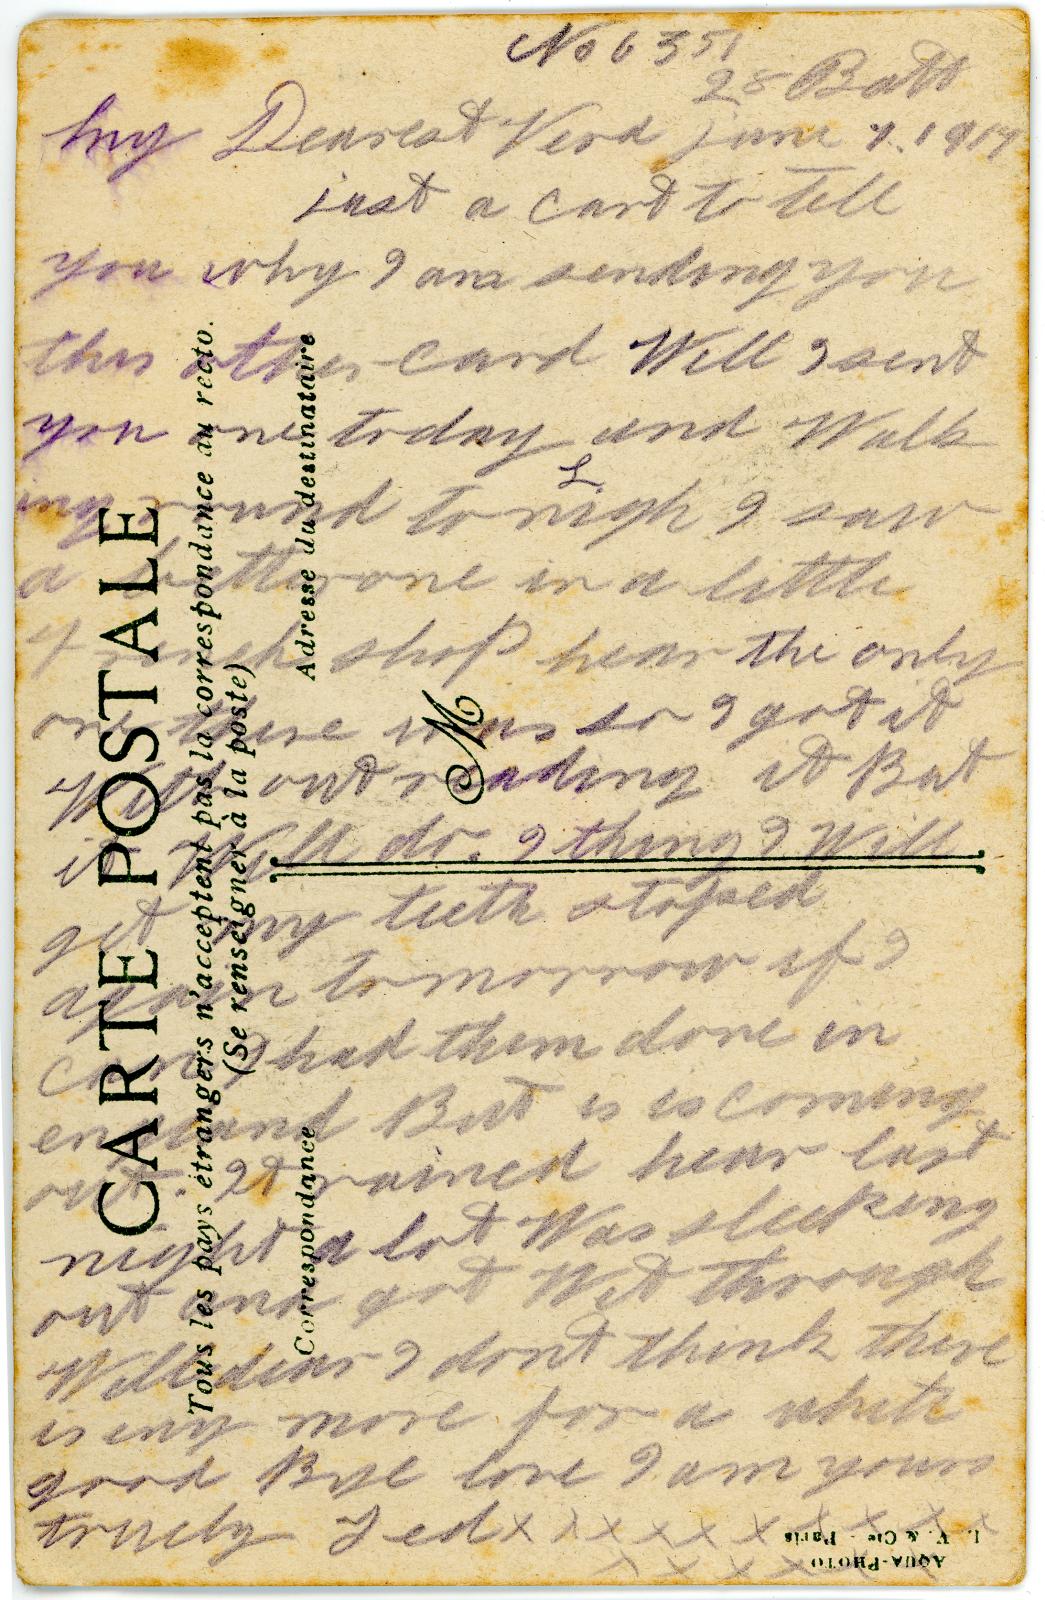 No 6351
28 Batt
my Dearest Verd june 7. 1917
just a card to tell
you why I am sending you
this other card Will I sent
you one today and Walk
ing round to nigh I saw
a better one in a little
French shop hear the only
one there was so I got it
With out reading it But
it Will do. I thing I Will
get my teeth stoped
again tomorrow if I
can I had them done in
england But is is coming
out. It rained hear last
night a lot Was sleeping
out and got Wet through
Will dear I dont think there
is eny more for a while
good Bye love I am yours
truely Ted x x x x x x x x x x
x x x x x x
CARTE POSTALE
Tous les pays étrangers n'acceptent pas la correspondance au recto.
(Se renseigner à la poste)
Correspondance
Adresse du destinataire
M
AQUA-PHOTO
L. V. & Cie - Paris